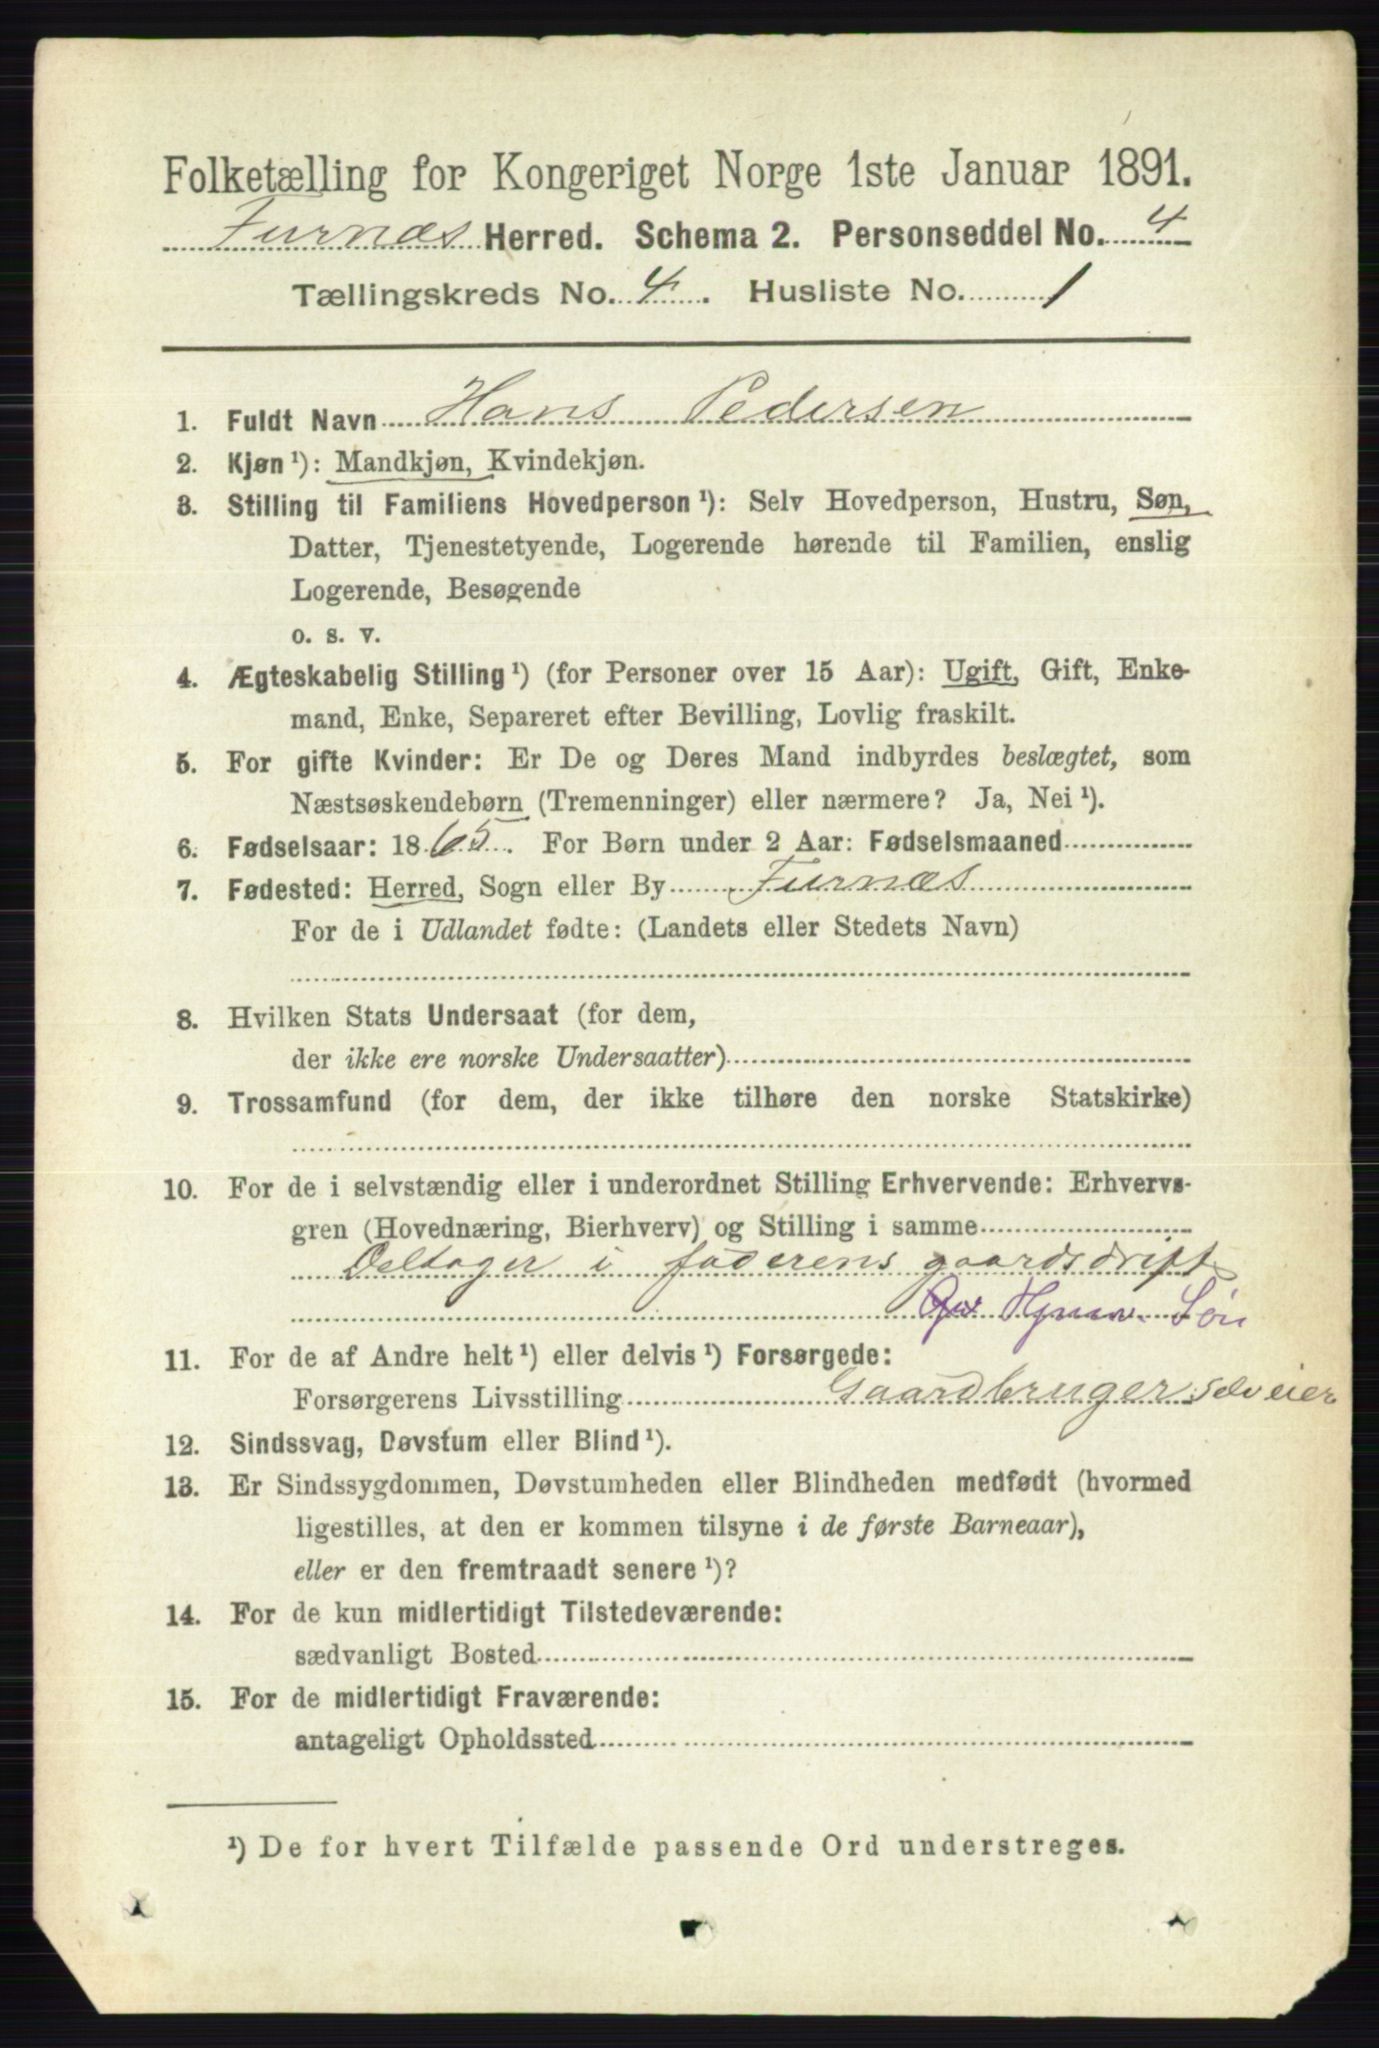 Folketælling for Kongeriget Norge 1ste Januar 1891.
Furnæs Herred. Schema 2. Personseddel No. 4
Tællingskreds No. 4. Husliste No. 1
1. Fuldt Navn Hans Pedersen
2. Kjøn ¹): Mandkjøn, Kvindekjøn.
3. Stilling til Familiens Hovedperson ¹): Selv Hovedperson, Hustru, Søn,
Datter, Tjenestetyende, Logerende hørende til Familien, enslig
Logerende, Besøgende
o. s. v.
4. Ægteskabelig Stilling ¹) (for Personer over 15 Aar): Ugift, Gift, Enke-
mand, Enke, Separeret efter Bevilling, Lovlig fraskilt.
5. For gifte Kvinder: Er De og Deres Mand indbyrdes beslægtet, som
Næstsøskendebørn (Tremenninger) eller nærmere? Ja, Nei ¹).
6. Fødselsaar: 1865. For Børn under 2 Aar: Fødselsmaaned
7. Fødested: Herred, Sogn eller By Furnæs
For de i Udlandet fødte: (Landets eller Stedets Navn)
8. Hvilken Stats Undersaat (for dem,
der ikke ere norske Undersaatter)
9. Trossamfund (for dem, der ikke tilhøre den norske Statskirke)
10. For de i selvstændig eller i underordnet Stilling Erhvervende: Erhvervs-
gren (Hovednæring, Bierhverv) og Stilling i samme
Deltager i faderens gaardsdrift
Søn
11. For de af Andre helt ¹) eller delvis ¹) Forsørgede:
Forsørgerens Livsstilling Gaardbruger selveier
12. Sindssvag, Døvstum eller Blind ¹).
13. Er Sindssygdommen, Døvstumheden eller Blindheden medfødt (hvormed
ligestilles, at den er kommen tilsyne i de første Barneaar),
eller er den fremtraadt senere ¹)?
14. For de kun midlertidigt Tilstedeværende:
sædvanligt Bosted
15. For de midlertidigt Fraværende:
antageligt Opholdssted
¹) De for hvert Tilfælde passende Ord understreges.